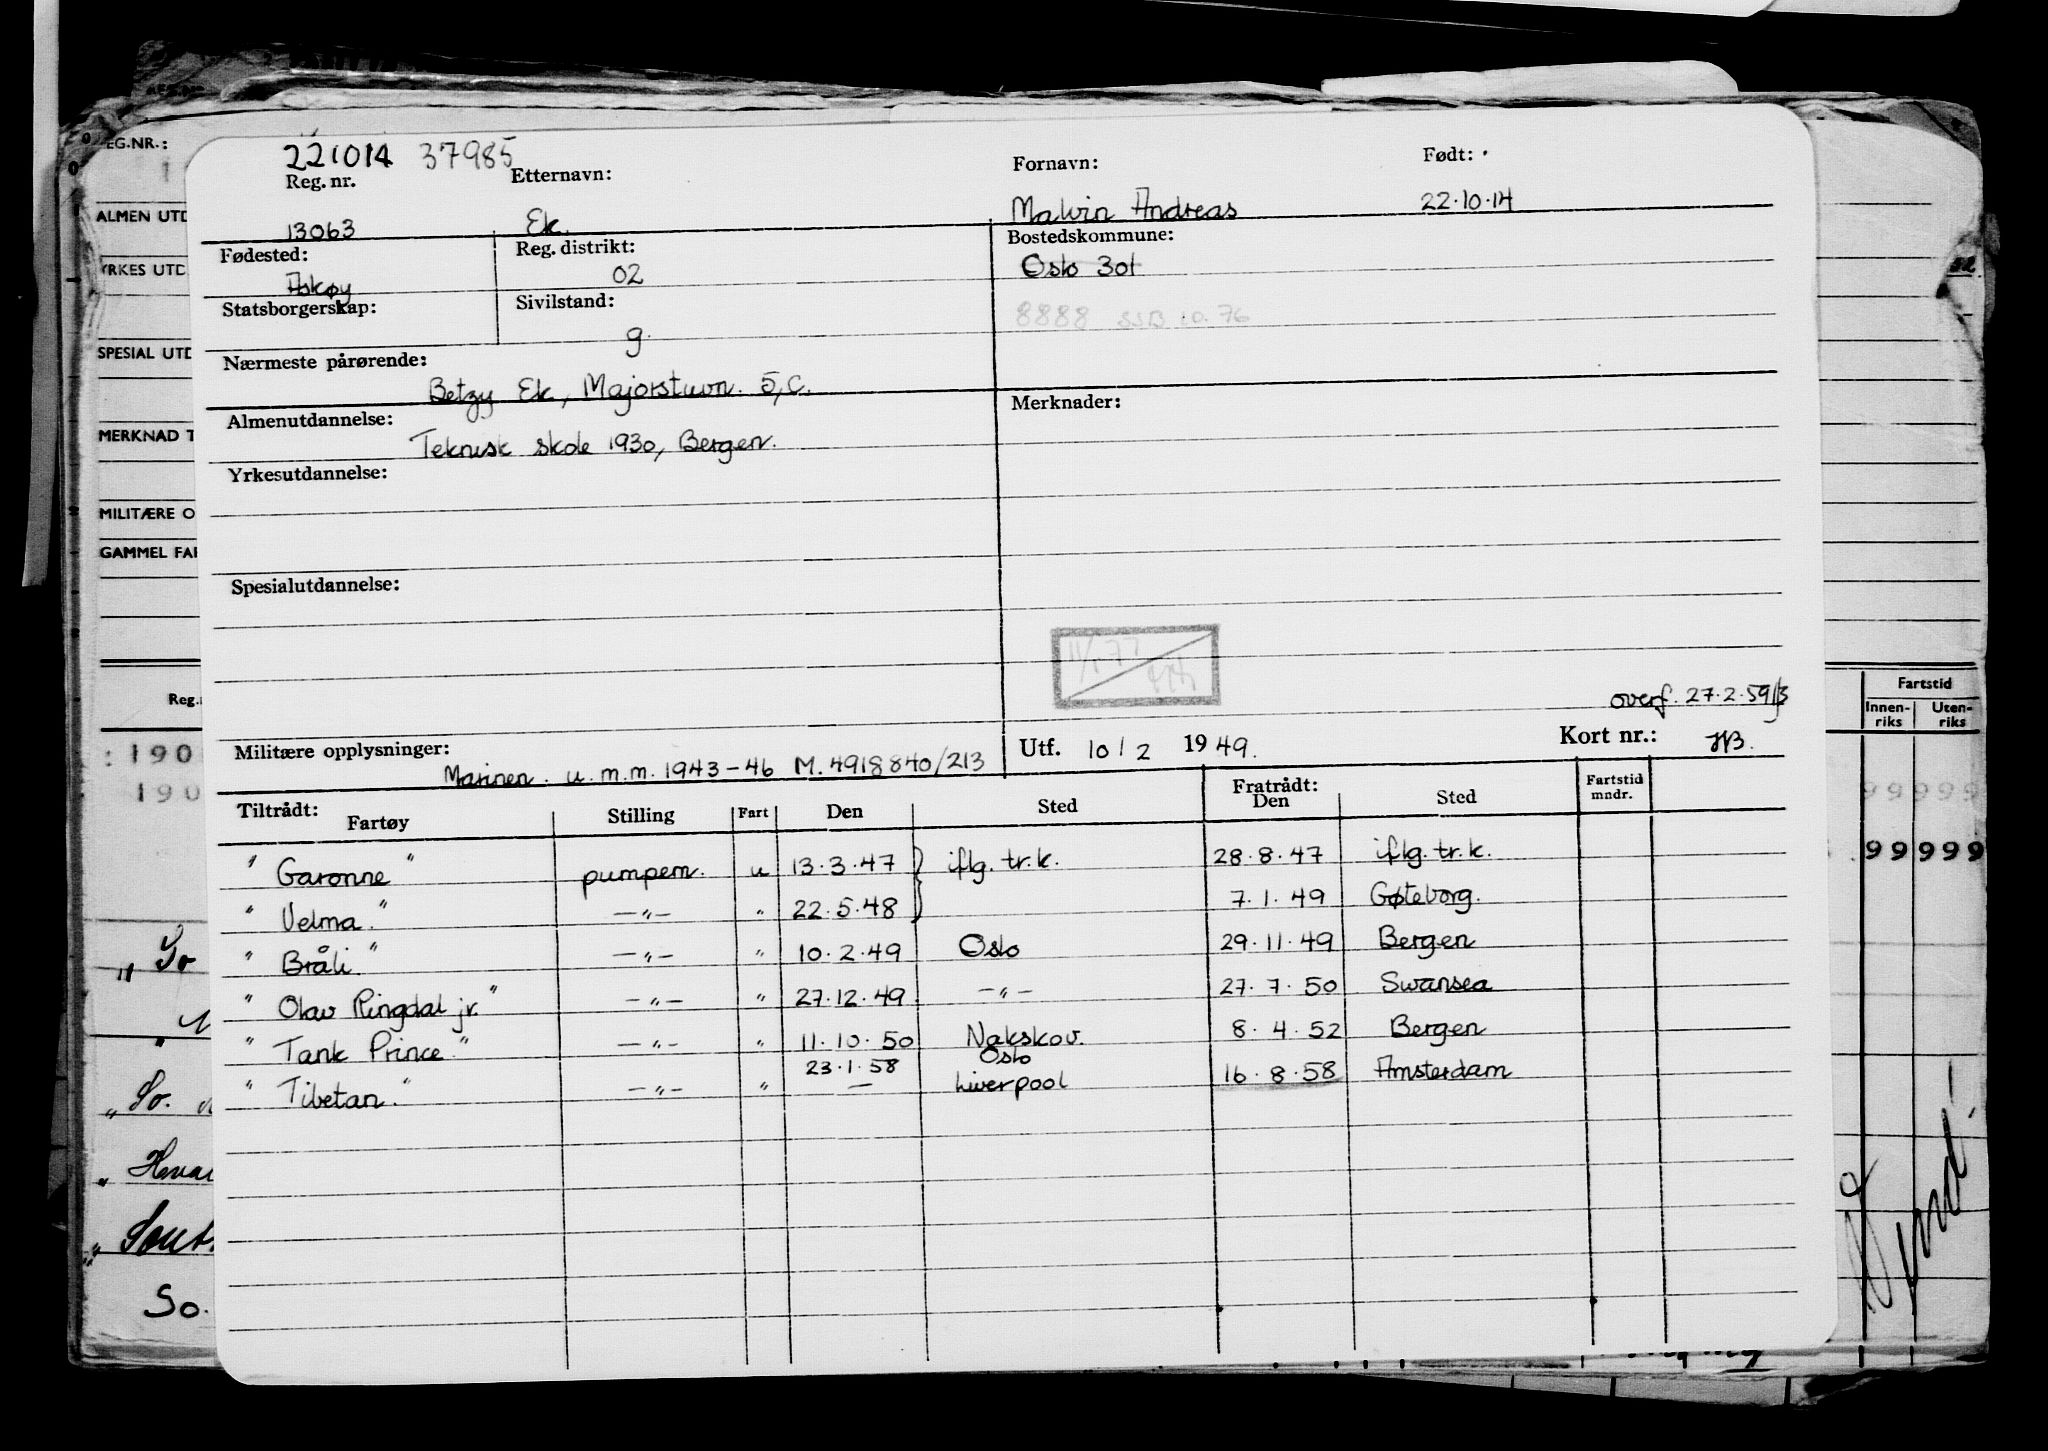 221014 37985
Reg. nr. Etternavn: Fornavn: Født:
13063 Ek. Malvin Andreas 22.10.14
Fødested: Reg. distrikt: Bostedskommune:
Askøy 02 Oslo 301
Statsborgerskap: Sivilstand:
g. 8888 SSB 10.76
Nærmeste pårørende:
Betzy Ek, Majorstuvn. 5, c.
Almenutdannelse: Merknader:
Teknisk skole 1930, Bergen.
Yrkesutdannelse:
Spesialutdannelse:
11/1 77
overf. 27.2.59
Militære opplysninger: Utf. 10/2 1949. Kort nr.:
Marinen. u.m.m. 1943-46 M. 4918840/213
Tiltrådt: Fratrådt: Fartstid mndr.
Fartøy Stilling Fart Den Sted Den Sted
" Garonne " pumpem. u 13.3.47 } iflg. tr.k. 28.8.47 iflg. tr.k.
" Velma." —"— " 22.5.48 } 7.1.49 Gøteborg.
" Bråli " —"— " 10.2.49 Oslo 29.11.49 Bergen
" Olav Ringdal jr. " —"— " 27.12.49 —"— 27.7.50 Swansea
" Tank Prince." —"— " 11.10.50 Nakskov. 8.4.52 Bergen
23.1.58 Oslo
" Tibetan." —"— " — Liverpool 16.8.58 Amsterdam
EG.NR.:
ALMEN UTD
YRKES UTD
SPESIAL UTD
MERKNAD T
MILITÆRE O
GAMMEL FAR
Reg.
: 190
190
" So
" So.
" Hvar
" Sout
So.
Fartstid
Innen-riks Uten-riks
99999
99999